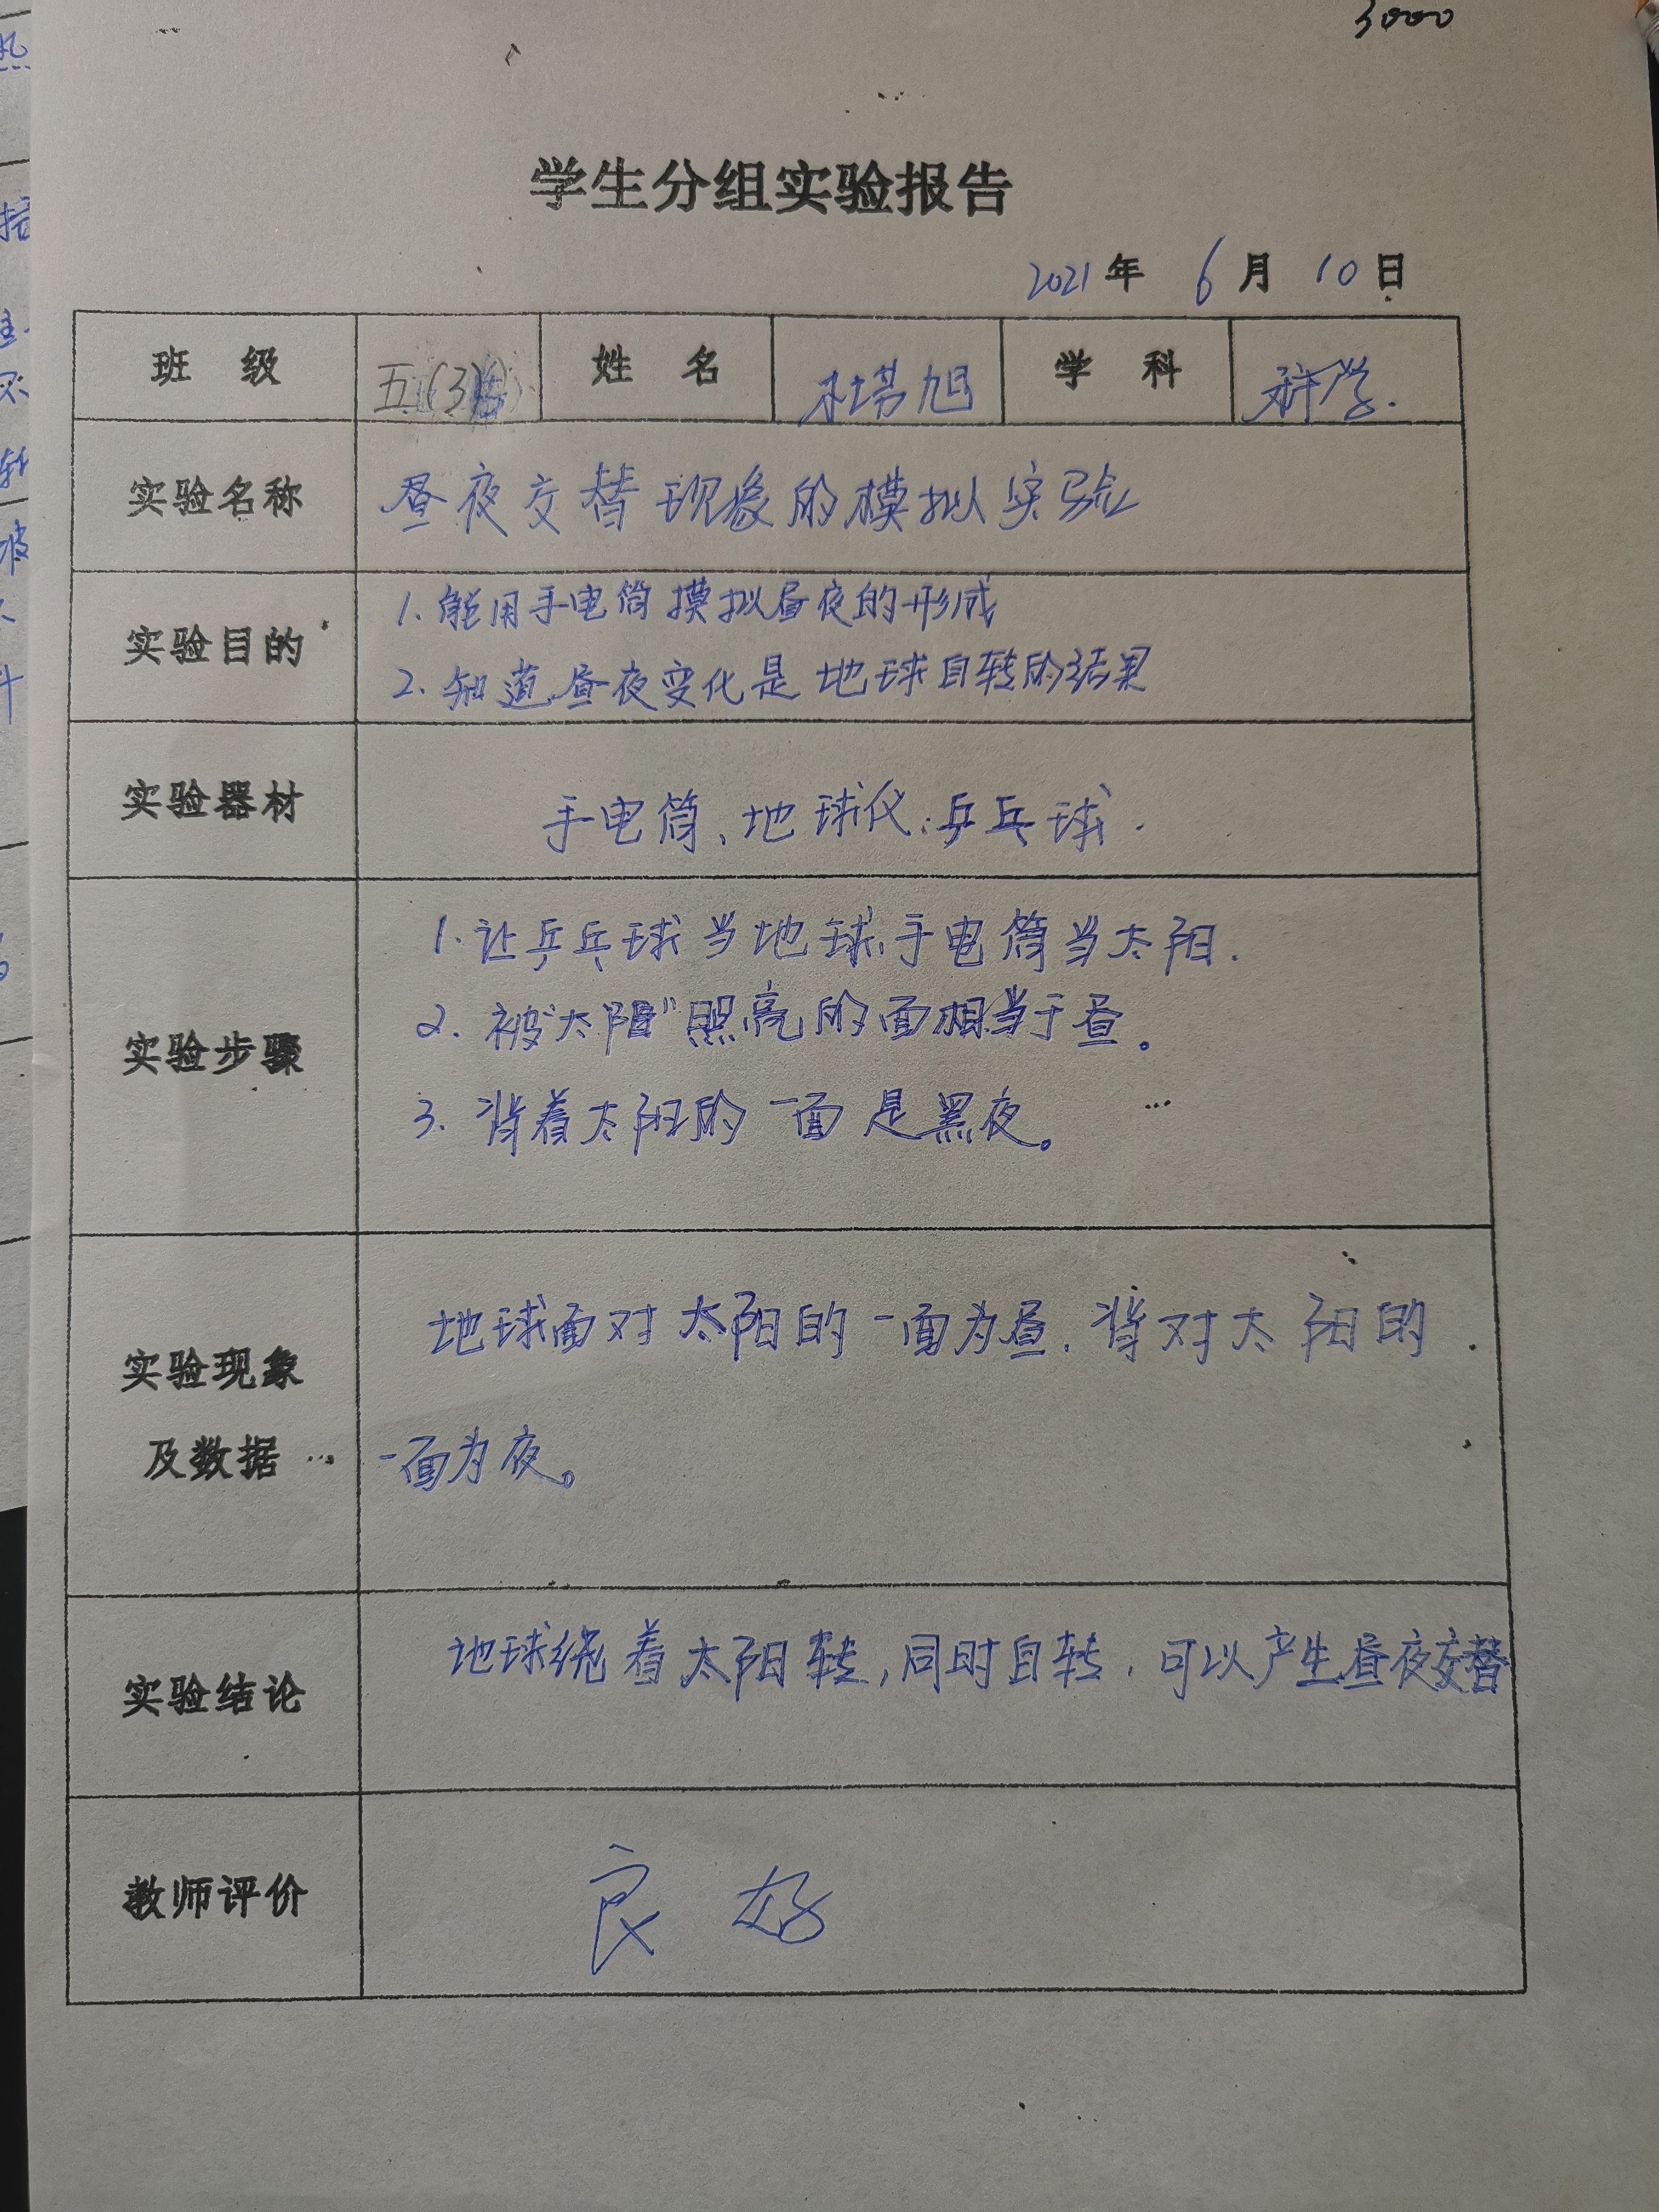 3000
学生分组实验报告
2021年 6月 10日
班 级 五(3) 姓 名 培旭 学 科 科学.
实验名称 昼夜交替现象的模拟实验
实验目的 1.能用手电筒摸拟昼夜的形成
2.知道昼夜变化是地球自转的结果
实验器材 手电筒、地球仪、乒乓球.
实验步骤 1.让乒乓球当地球,手电筒当太阳.
2.被“太阳”照亮的面相当于昼。
3.背着太阳的一面是黑夜。
实验现象及数据 地球面对太阳的一面为昼,背对太阳的
一面为夜。
实验结论 地球绕着太阳转,同时自转,可以产生昼夜交替
教师评价 良好